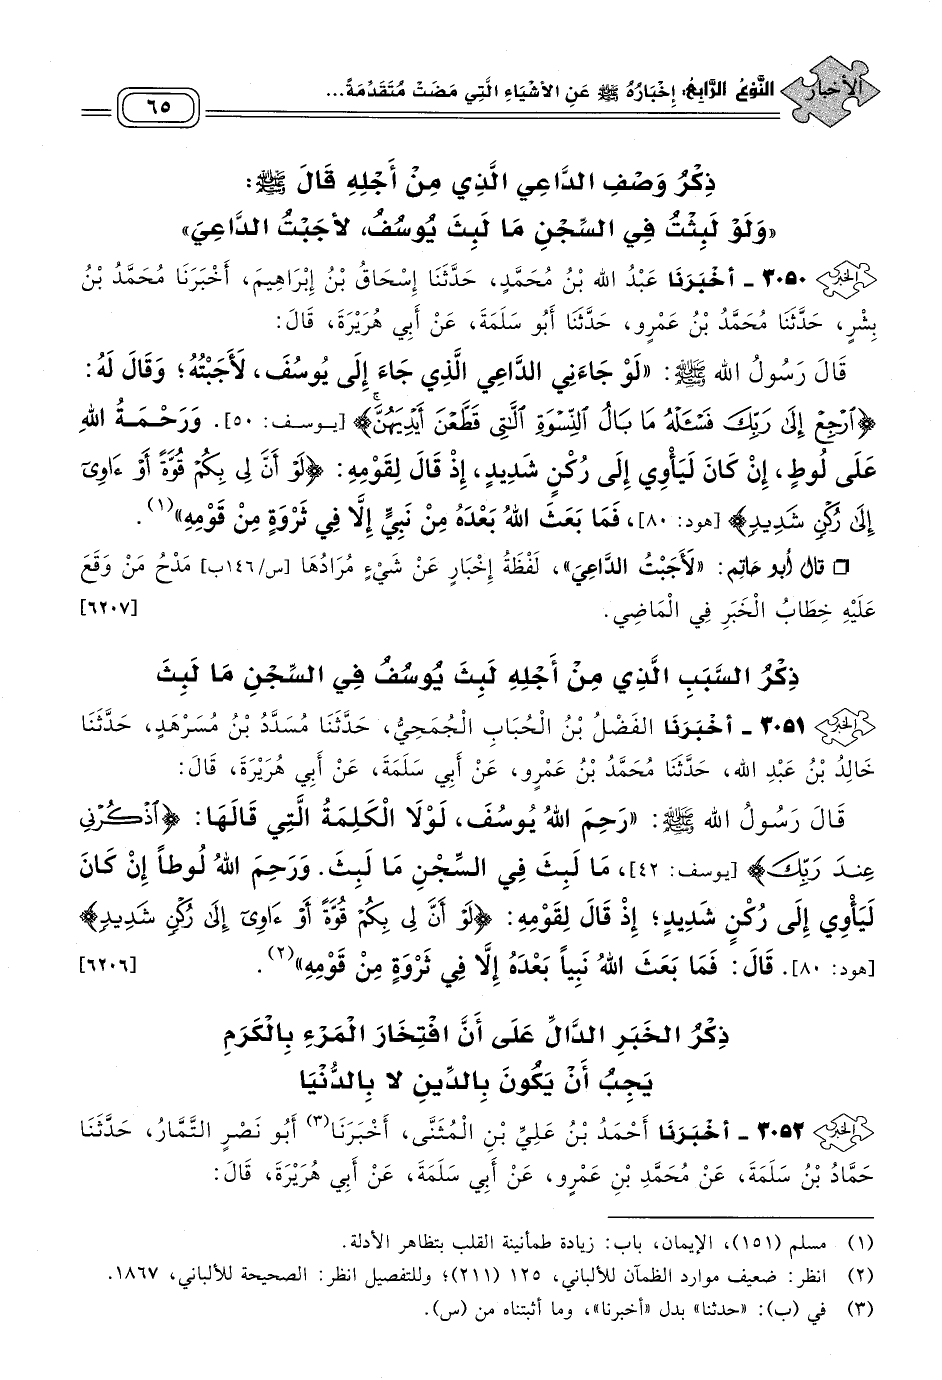 الأخبار
النَّوْعُ الرَّابِعُ: إِخْبَارُهُ ﷺ عَنِ الأَشْيَاءِ الَّتِي مَضَتْ مُتَقَدِّمَةً...
٦٥
ذِكْرُ وَصْفِ الدَّاعِي الَّذِي مِنْ أَجْلِهِ قَالَ ﷺ:
«وَلَوْ لَبِثْتُ فِي السِّجْنِ مَا لَبِثَ يُوسُفُ، لأَجَبْتُ الدَّاعِيَ»
٣٠٥٠ ـ أَخْبَرَنَا عَبْدُ الله بْنُ مُحَمَّدٍ، حَدَّثَنَا إِسْحَاقُ بْنُ إِبْرَاهِيمَ، أَخْبَرَنَا مُحَمَّدُ بْنُ
بِشْرٍ، حَدَّثَنَا مُحَمَّدُ بْنُ عَمْرٍو، حَدَّثَنَا أَبُو سَلَمَةَ، عَنْ أَبِي هُرَيْرَةَ، قَالَ:
قَالَ رَسُولُ الله ﷺ: «لَوْ جَاءَنِي الدَّاعِي الَّذِي جَاءَ إِلَى يُوسُفَ، لَأَجَبْتُهُ؛ وَقَالَ لَهُ:
﴿ٱرْجِعْ إِلَىٰ رَبِّكَ فَسْـَٔلْهُ مَا بَالُ ٱلنِّسْوَةِ ٱلَّٰتِي قَطَّعْنَ أَيْدِيَهُنَّ﴾ [يوسف: ٥٠]. وَرَحْمَةُ اللهِ
عَلَى لُوطٍ، إِنْ كَانَ لَيَأْوِي إِلَى رُكْنٍ شَدِيدٍ، إِذْ قَالَ لِقَوْمِهِ: ﴿لَوْ أَنَّ لِى بِكُمْ قُوَّةً أَوْ ءَاوِىٓ
إِلَىٰ رُكْنٍ شَدِيدٍ﴾ [هود: ٨٠]، فَمَا بَعَثَ اللهُ بَعْدَهُ مِنْ نَبِيٍّ إِلَّا فِي ثَرْوَةٍ مِنْ قَوْمِهِ»(١).
□ قال أبو حاتم: «لَأَجَبْتُ الدَّاعِيَ»، لَفْظَةُ إِخْبَارٍ عَنْ شَيْءٍ مُرَادُهَا [س/١٤٦ب] مَدْحُ مَنْ وَقَعَ
عَلَيْهِ خِطَابُ الْخَبَرِ فِي الْمَاضِي. [٦٢٠٧]
ذِكْرُ السَّبَبِ الَّذِي مِنْ أَجْلِهِ لَبِثَ يُوسُفُ فِي السِّجْنِ مَا لَبِثَ
٣٠٥١ ـ أَخْبَرَنَا الفَضْلُ بْنُ الْحُبَابِ الْجُمَحِيُّ، حَدَّثَنَا مُسَدَّدُ بْنُ مُسَرْهَدٍ، حَدَّثَنَا
خَالِدُ بْنُ عَبْدِ الله، حَدَّثَنَا مُحَمَّدُ بْنُ عَمْرٍو، عَنْ أَبِي سَلَمَةَ، عَنْ أَبِي هُرَيْرَةَ، قَالَ:
قَالَ رَسُولُ الله ﷺ: «رَحِمَ اللهُ يُوسُفَ، لَوْلَا الْكَلِمَةُ الَّتِي قَالَهَا: ﴿ٱذْكُرْنِى
عِندَ رَبِّكَ﴾ [يوسف: ٤٢]، مَا لَبِثَ فِي السِّجْنِ مَا لَبِثَ. وَرَحِمَ اللهُ لُوطاً إِنْ كَانَ
لَيَأْوِي إِلَى رُكْنٍ شَدِيدٍ؛ إِذْ قَالَ لِقَوْمِهِ: ﴿لَوْ أَنَّ لِى بِكُمْ قُوَّةً أَوْ ءَاوِىٓ إِلَىٰ رُكْنٍ شَدِيدٍ﴾
[هود: ٨٠]. قَالَ: فَمَا بَعَثَ اللهُ نَبِياً بَعْدَهُ إِلَّا فِي ثَرْوَةٍ مِنْ قَوْمِهِ»(٢). [٦٢٠٦]
ذِكْرُ الخَبَرِ الدَّالِّ عَلَى أَنَّ افْتِخَارَ الْمَرْءِ بِالْكَرَمِ
يَجِبُ أَنْ يَكُونَ بِالدِّينِ لا بِالدُّنْيَا
٣٠٥٢ ـ أَخْبَرَنَا أَحْمَدُ بْنُ عَلِيِّ بْنِ الْمُثَنَّى، أَخْبَرَنَا(٣) أَبُو نَصْرٍ التَّمَّارُ، حَدَّثَنَا
حَمَّادُ بْنُ سَلَمَةَ، عَنْ مُحَمَّدِ بْنِ عَمْرٍو، عَنْ أَبِي سَلَمَةَ، عَنْ أَبِي هُرَيْرَةَ، قَالَ:
(١) مسلم (١٥١)، الإيمان، باب: زيادة طمأنينة القلب بتظاهر الأدلة.
(٢) انظر: ضعيف موارد الظمآن للألباني، ١٢٥ (٢١١)؛ وللتفصيل انظر: الصحيحة للألباني، ١٨٦٧.
(٣) في (ب): «حدثنا» بدل «أخبرنا»، وما أثبتناه من (س).